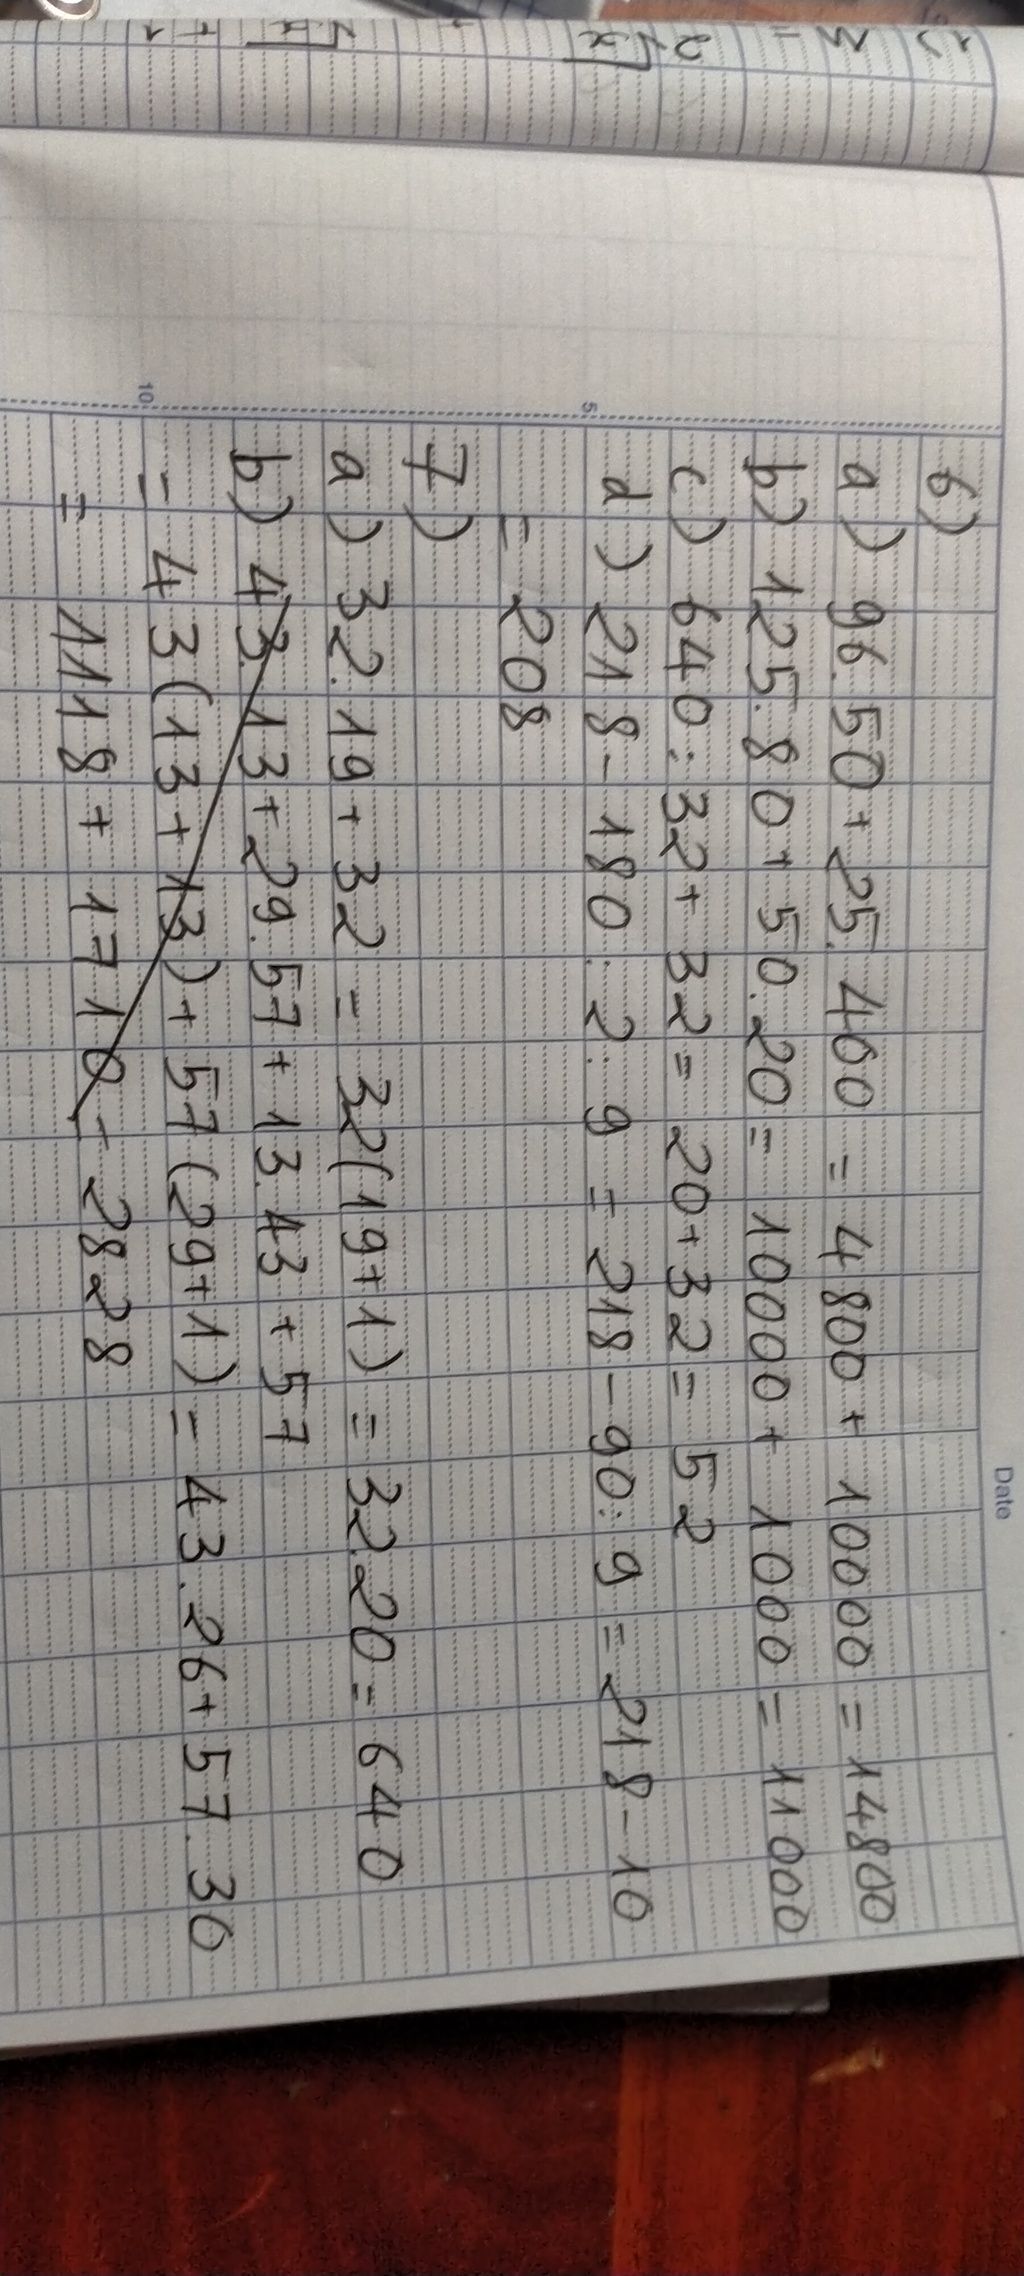 Date
6)
a) 96.50 + 25.400 = 4800 + 10000 = 14800
b) 125.80 + 50.20 = 10000 + 1000 = 11000
c) 640 : 32 + 32 = 20 + 32 = 52
d) 218 - 180 : 2 : 9 = 218 - 90 : 9 = 218 - 10
5
= 208
7)
a) 32.19 + 32 = 32(19+1) = 32.20 = 640
b) 43.13 + 29.57 + 13.43 + 57
= 43(13+13) + 57(29+1) = 43.26 + 57.30
10
= 1118 + 1710 = 2828